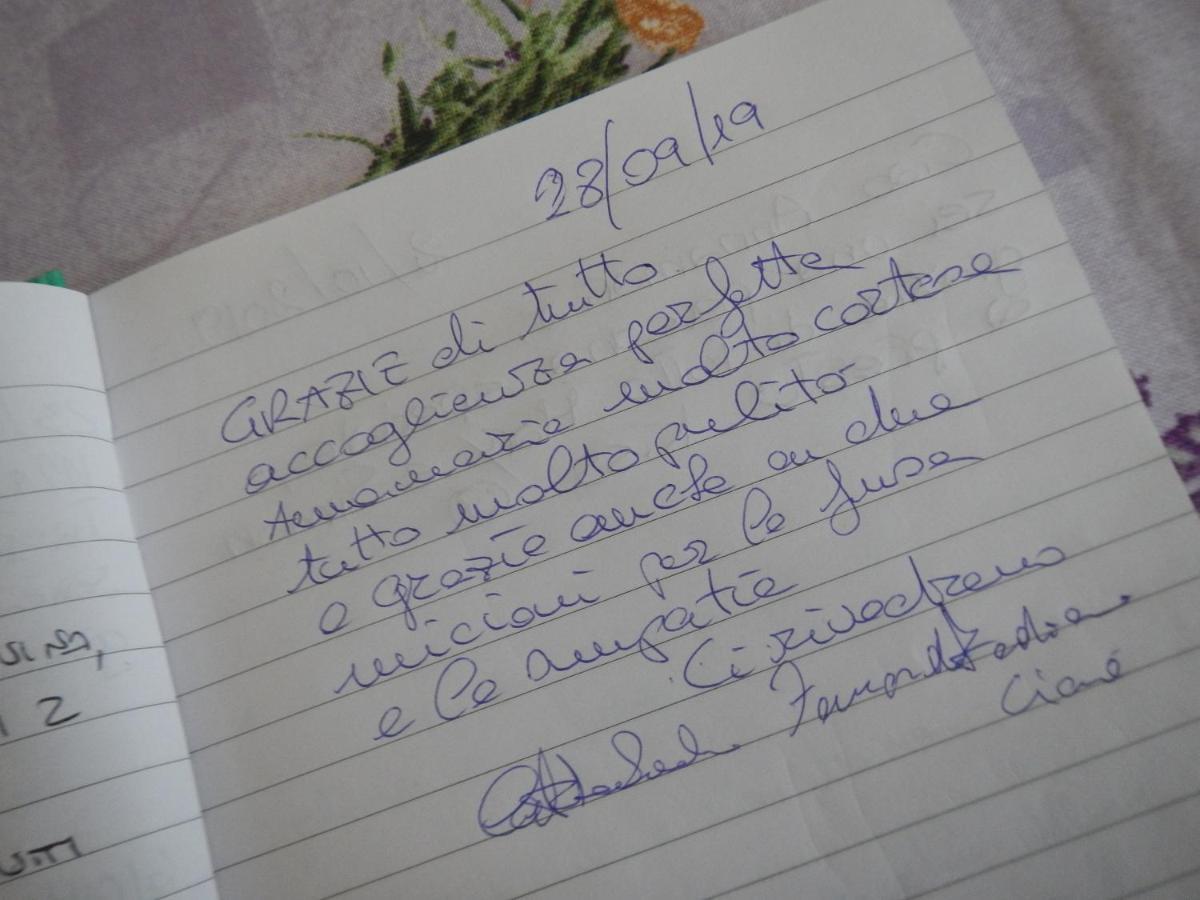 28/09/19
GRAZIE di tutto
accoglienza perfetta
Annamaria molto cortese
tutto molto pulito
e grazie anche ai due
micioni per le fusa
e la simpatia
Ci rivedremo
Ciané
2